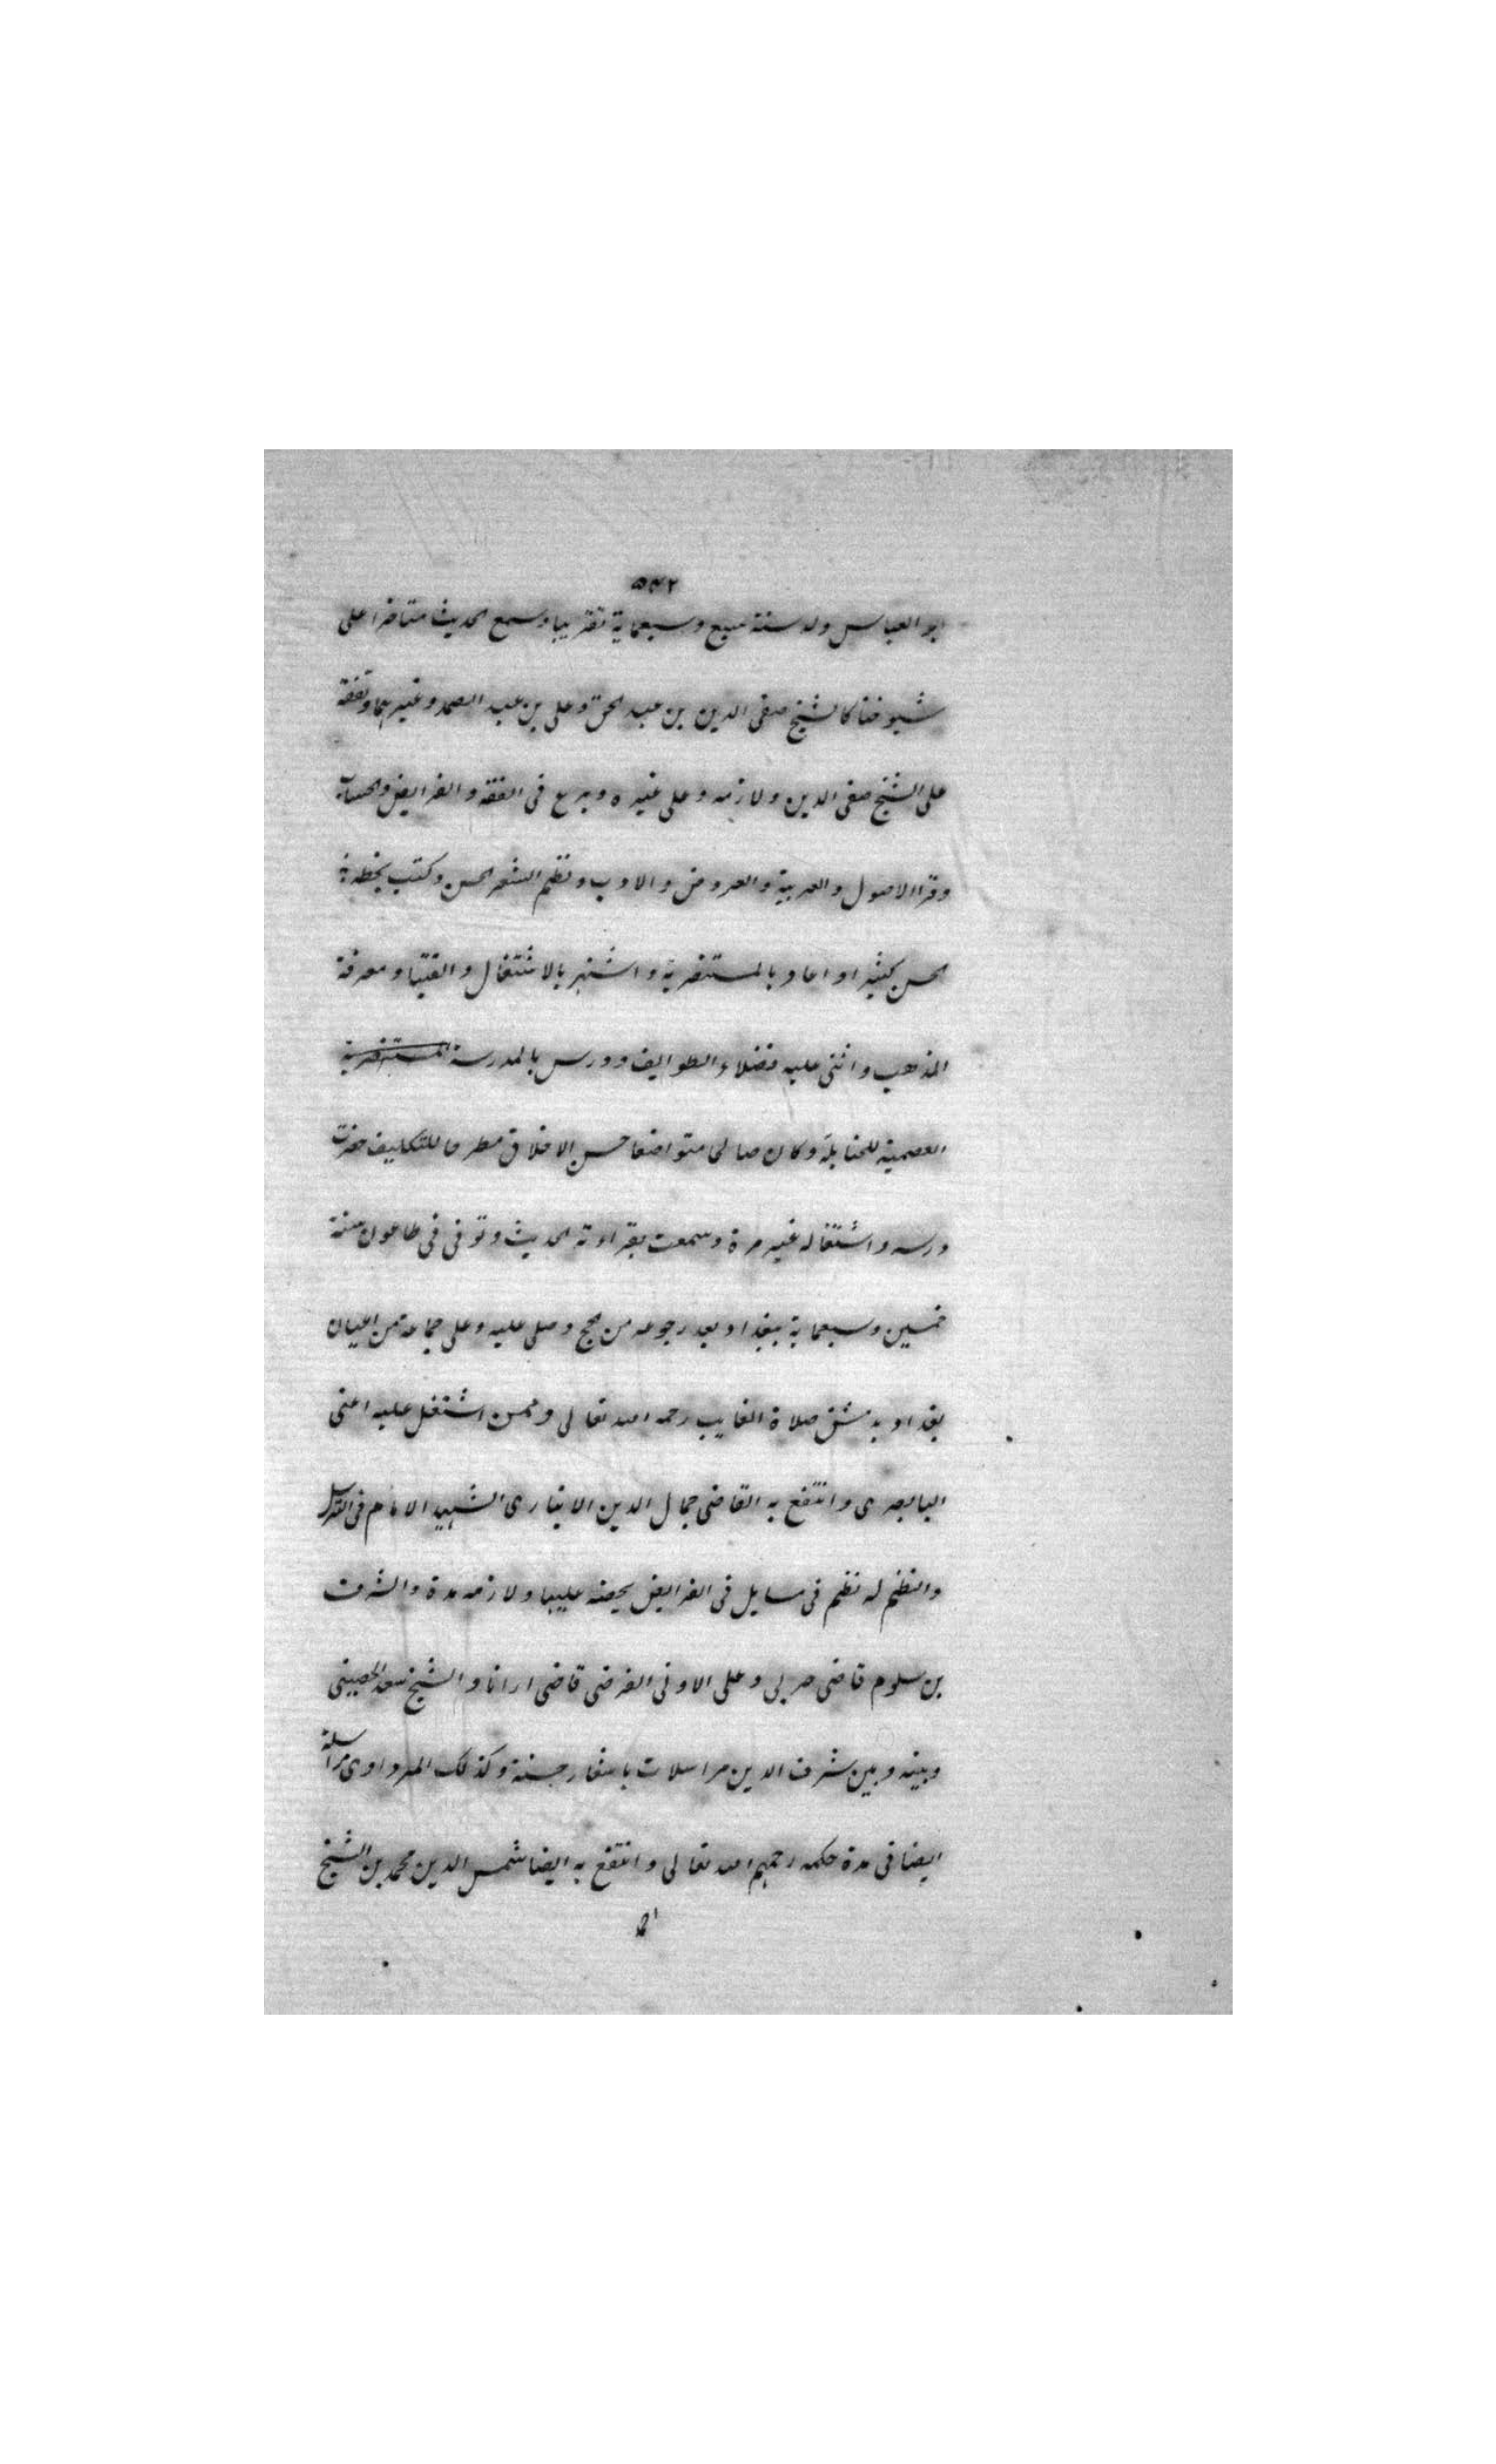 ٥٤٢
ابو العباس ولد سنة سبع وسبعماية تقريبا وسمع الحديث متاخرا على
شيوخنا كالشيخ صفى الدين بن عبد الحق وعلى بن عبد الصمد وغيرهما وتفقه
على الشيخ صفى الدين ولازمه وعلى غيره وبرع فى الفقه والفرايض والحساب
وقرا الاصول والعربية والعروض والادب ونظم الشعر الحسن وكتب بخطه
الحسن كثيرا واعاد بالمستنصرية واشتهر بالاشتغال والفتيا ومعرفة
المذهب واثنى عليه فضلاء الطوايف ودرس بالمدرسة المستنصرية
للحنابلة وكان صالحا متواضعا حسن الاخلاق مطرحا للتكليف حضرت
درسه واشتغاله غير مرة وسمعت بقراءته الحديث وتوفى فى طاعون سنة
خمسين وسبعماية ببغداد بعد رجوعه من الحج وصلى عليه وعلى جماعة من اعيان
بغداد بدمشق صلاة الغايب رحمه الله تعالى وممن اشتغل عليه اعنى
البابصرى وانتفع به القاضى جمال الدين الانبارى الشهيد الامام فى
والنظم له نظم فى مسايل فى الفرايض عليها ولازمه مدة والشرف
بن سلوم قاضى حربى وعلى الاونى الفرضى قاضى اوانا والشيخ سعد الحصينى
وبينه وبين شرف الدين مراسلات باشعار حسنة وكذلك المرداوى مراسلة
ايضا فى مدة حكمه رحمهم الله تعالى وانتفع به ايضا شمس الدين محمد بن الشيخ
احمد